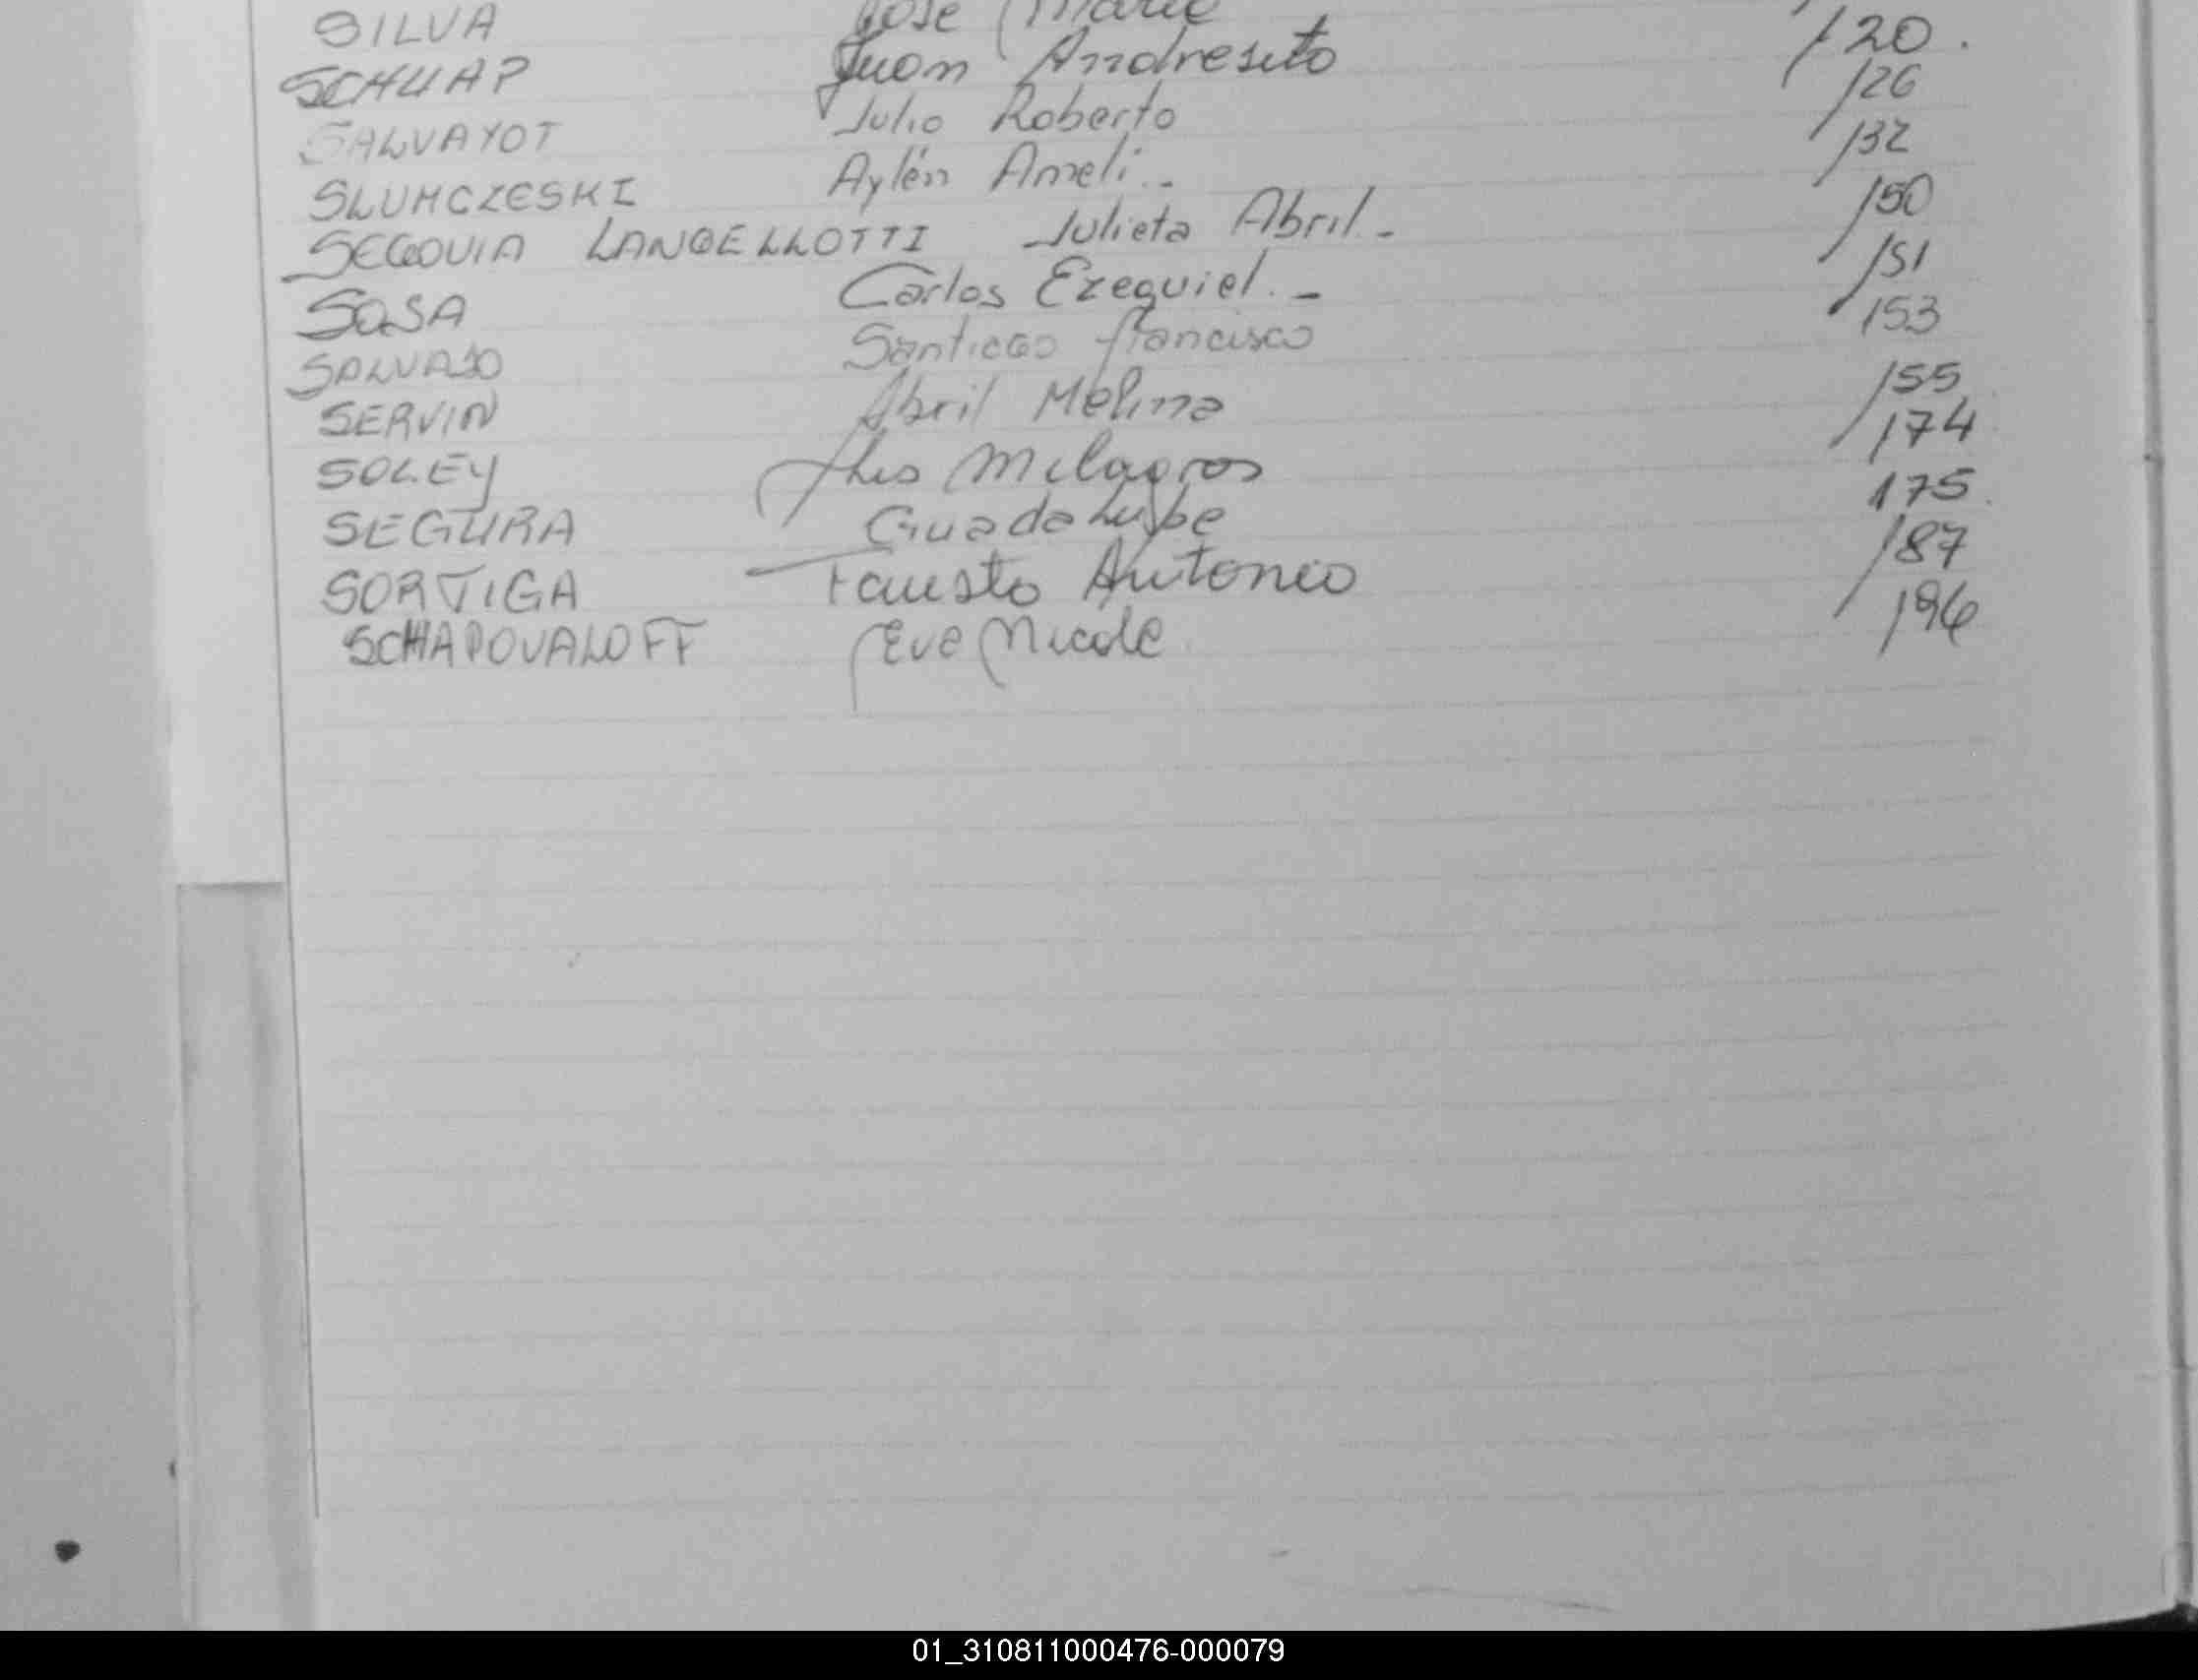 SILVA José Mario
SCHUAP Juan Andresito 120.
SALVAYOT Julio Roberto 126
SLUMCZESKI Aylén Ameli.- 132
SEGOVIA LANGELLOTTI Julieta Abril.- 150
SOSA Carlos Ezequiel.- 151
SALVAJO Santiago Francisco 153
SERVIN Abril Melina 155
SOLEY Milagros 174
SEGURA Guadalupe 175.
SORTIGA Fausto Antonio 187
SCHAPOVALOFF Eve Nicole 196
01_310811000476-000079